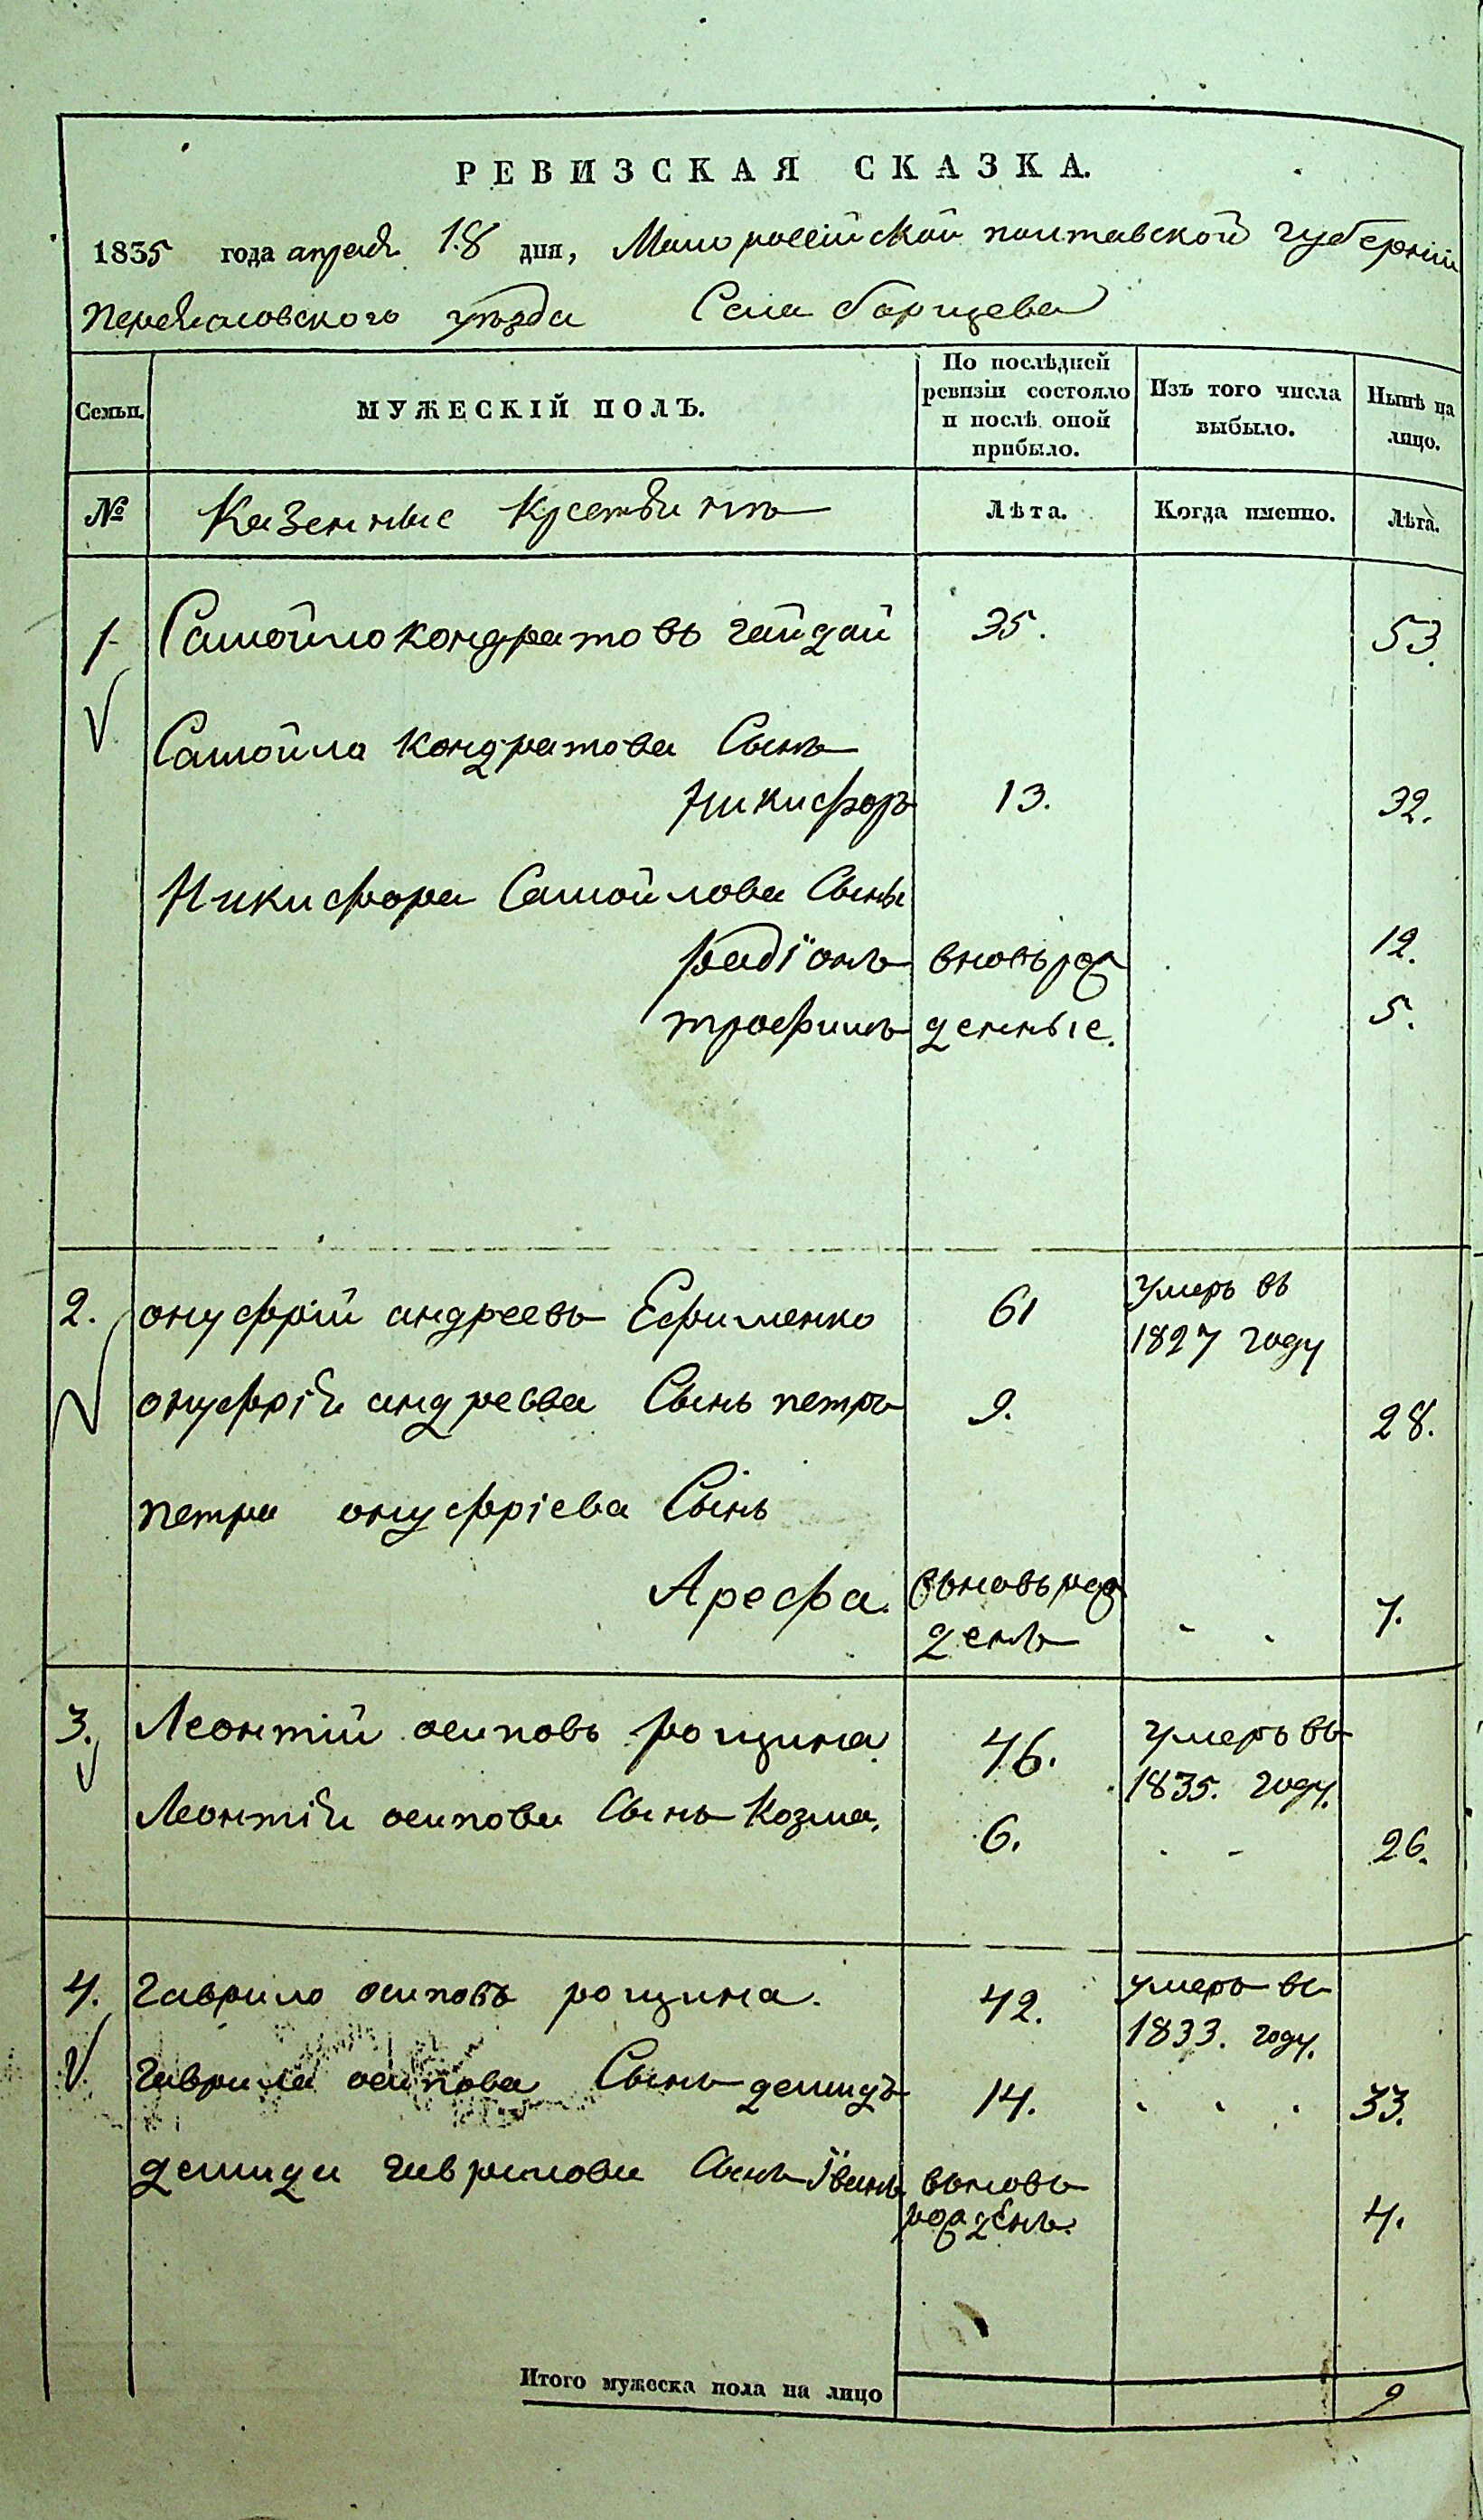 РЕВИЗСКАЯ СКАЗКА.
1835 года апреля 18 дня, Малороссійской полтавской губерніи
Переяславского уѣзда Села борщева
Семьи. МУЖЕСКІЙ ПОЛЪ. По послѣдней ревизіи состояло и послѣ оной прибыло. Изъ того числа выбыло. Нынѣ на лицо.
№ Казенные Крестьянъ Лѣта. Когда именно. Лѣта.
1 Самойло кондратовъ гайдай 35. 53.
Самойла кондратова Сынъ
Никифоръ 13. 32.
Никифора Самойлова Сыны
радіонъ вновь рож 12.
трофимъ денные. 5.
2. онуфрій андреевъ Ефименко 61 умеръ въ
1827 году
онуфрія андреева Сынъ петръ 9. 28.
петра онуфріева Сынъ
Арефа. вьновь рож
денъ 7.
3. Леонтій осиповъ рощина 46. умеръ въ
1835. году.
Леонтія осипова Сынъ Козма. 6. 26.
4. гаврило осиповъ рощина. 42. умеръ въ
1833. году.
гаврила осипова Сынъ демидъ 14. 33.
демида гаврилова Сынъ Іванъ вьновь
рожденъ. 4.
Итого мужеска пола на лицо 9